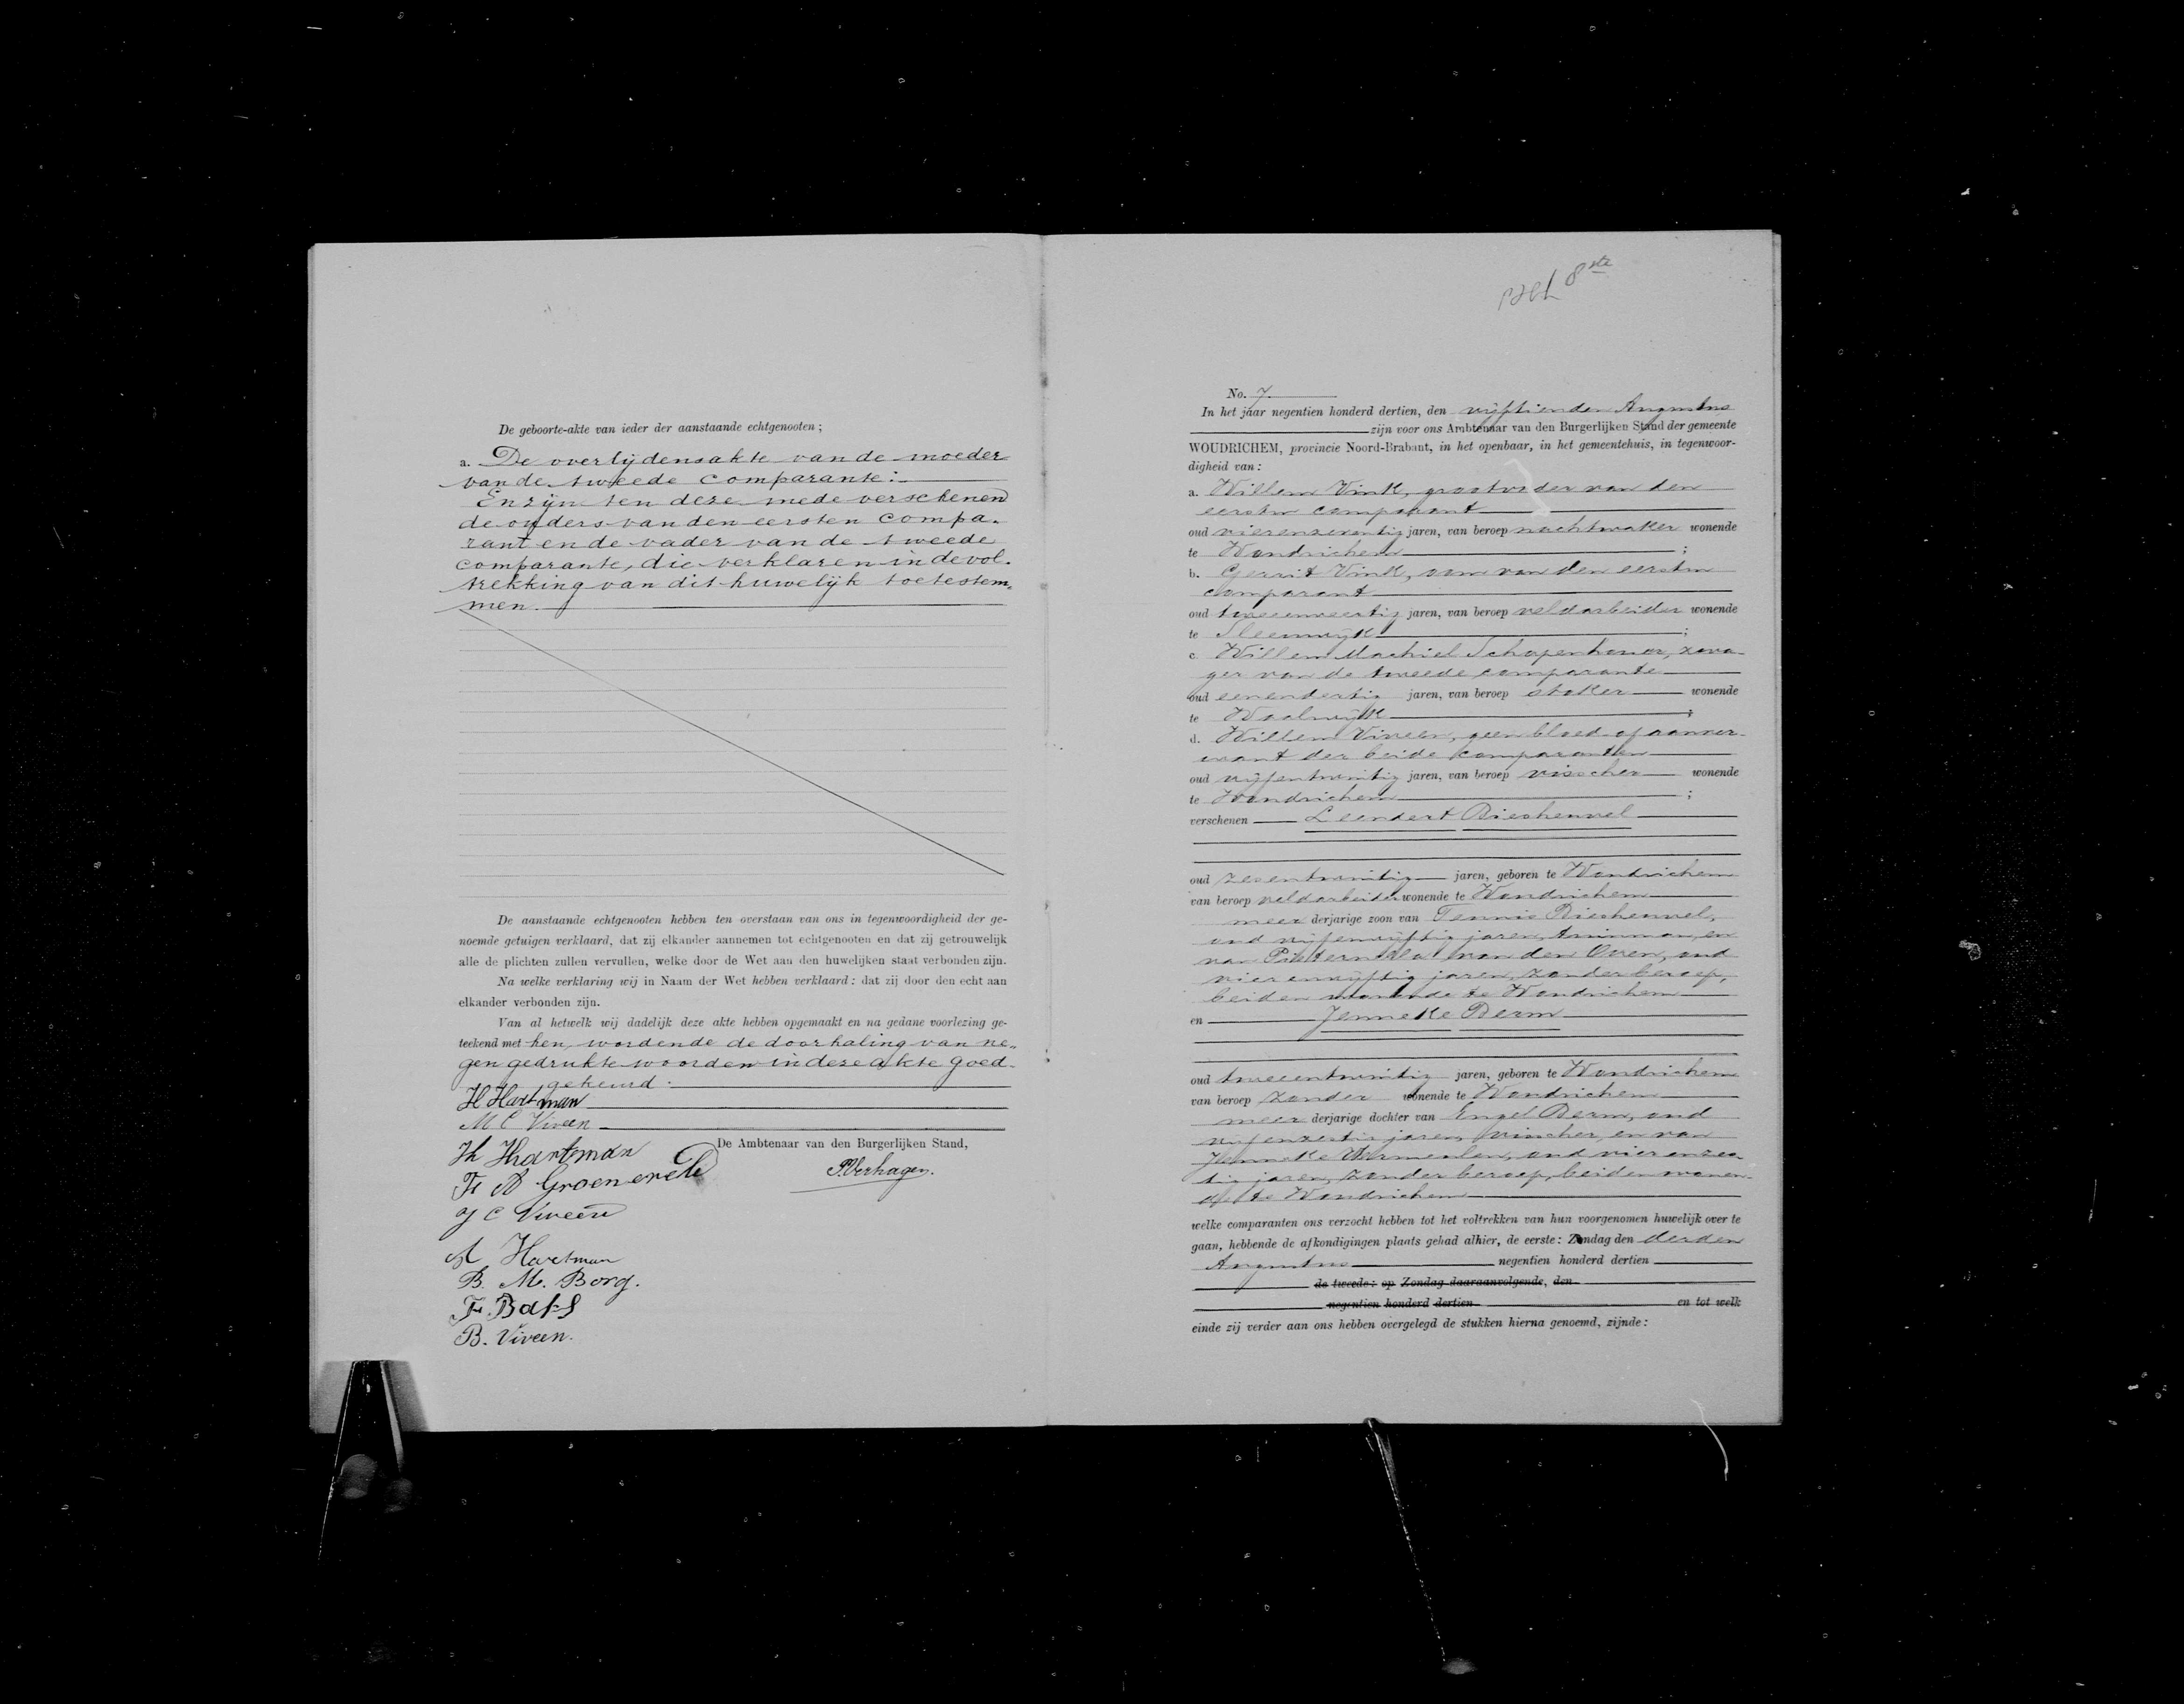 De geboorte-akte van ieder der aanstaande echtgenooten;
a. De overlijdensakte van de moeder
van de tweede comparante:
En zijn ten deze mede verschenen
de ouders van den eersten compa-
rant en de vader van de tweede
comparante, die verklaren in de vol-
trekking van dit huwelijk toetestem-
men.
De aanstaande echtgenooten hebben ten overstaan van ons in tegenwoordigheid der ge-
noemde getuigen verklaard, dat zij elkander aannemen tot echtgenooten en dat zij getrouwelijk
alle de plichten zullen vervullen, welke door de Wet aan den huwelijken staat verbonden zijn.
Na welke verklaring wij in Naam der Wet hebben verklaard: dat zij door den echt aan
elkander verbonden zijn.
Van al hetwelk wij dadelijk deze akte hebben opgemaakt en na gedane voorlezing ge-
teekend met hen, wordende de doorhaling van ne-
gen gedrukte woorden in deze akte goed-
gekeurd.
H Hartman
M C Viveen
De Ambtenaar van den Burgerlijken Stand,
Th Hartman
P. Verhagen.
J C Viveen
A Hartman
B. M. Borg.
F. Baks
B. Viveen.
8ste
No. 7.
In het jaar negentien honderd dertien, den vijftienden Augustus
zijn voor ons Ambtenaar van den Burgerlijken Stand der gemeente
WOUDRICHEM, provincie Noord-Brabant, in het openbaar, in het gemeentehuis, in tegenwoor-
digheid van:
a. Willem Vink, grootvader van den
eersten comparant
oud vierenzeventig jaren, van beroep nachtwaker wonende
te Woudrichem;
b. Gerrit Vink, oom van den eersten
comparant
oud tweeenveertig jaren, van beroep veldarbeider wonende
te Sleeuwijk;
c Willem Machiel Schapenhouer, zwa-
ger van de tweede comparante
oud eenendertig jaren, van beroep stoker wonende
te Waalwijk;
d. Willem Viveen, geen bloed- of aanver-
want der beide comparanten
oud vijfentwintig jaren, van beroep visscher wonende
te Woudrichem;
verschenen Leendert Riesheuvel
oud zesentwintig jaren, geboren te Woudrichem
van beroep veldarbeider wonende te Woudrichem
meerderjarige zoon van Teunis Riesheuvel,
oud vijfenvijftig jaren, tuinman, en
van Pieternella van den Oever, oud
vierenvijftig jaren, zonder beroep,
beiden wonende te Woudrichem
en Jenneke Berm
oud tweeentwintig jaren, geboren te Woudrichem
van beroep zonder wonende te Woudrichem
meerderjarige dochter van Engel Berm, oud
vijfenzestig jaren, visscher, en van
Jenneke Vermeulen, oud vierenzes-
tig jaren, zonder beroep, beiden wonen-
de te Woudrichem
welke comparanten ons verzocht hebben tot het voltrekken van hun voorgenomen huwelijk over te
gaan, hebbende de afkondigingen plaats gehad alhier, de eerste: Zondag den derden
Augustus negentien honderd dertien
de tweede: op Zondag daaraanvolgende, den
negentien honderd dertien en tot welk
einde zij verder aan ons hebben overgelegd de stukken hierna genoemd, zijnde: